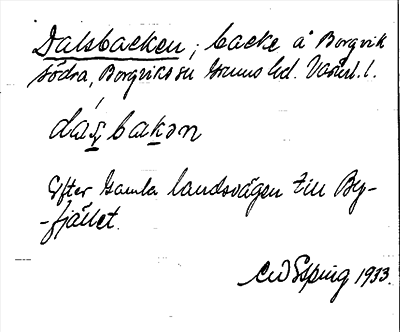 Dalsbacken; backe å Borgvik
södra, Borgviks sn Grums hd. Värml. l.
dáʂbakən
Efter gamla landsvägen till By-
-fjället.
C W Esping 1933.